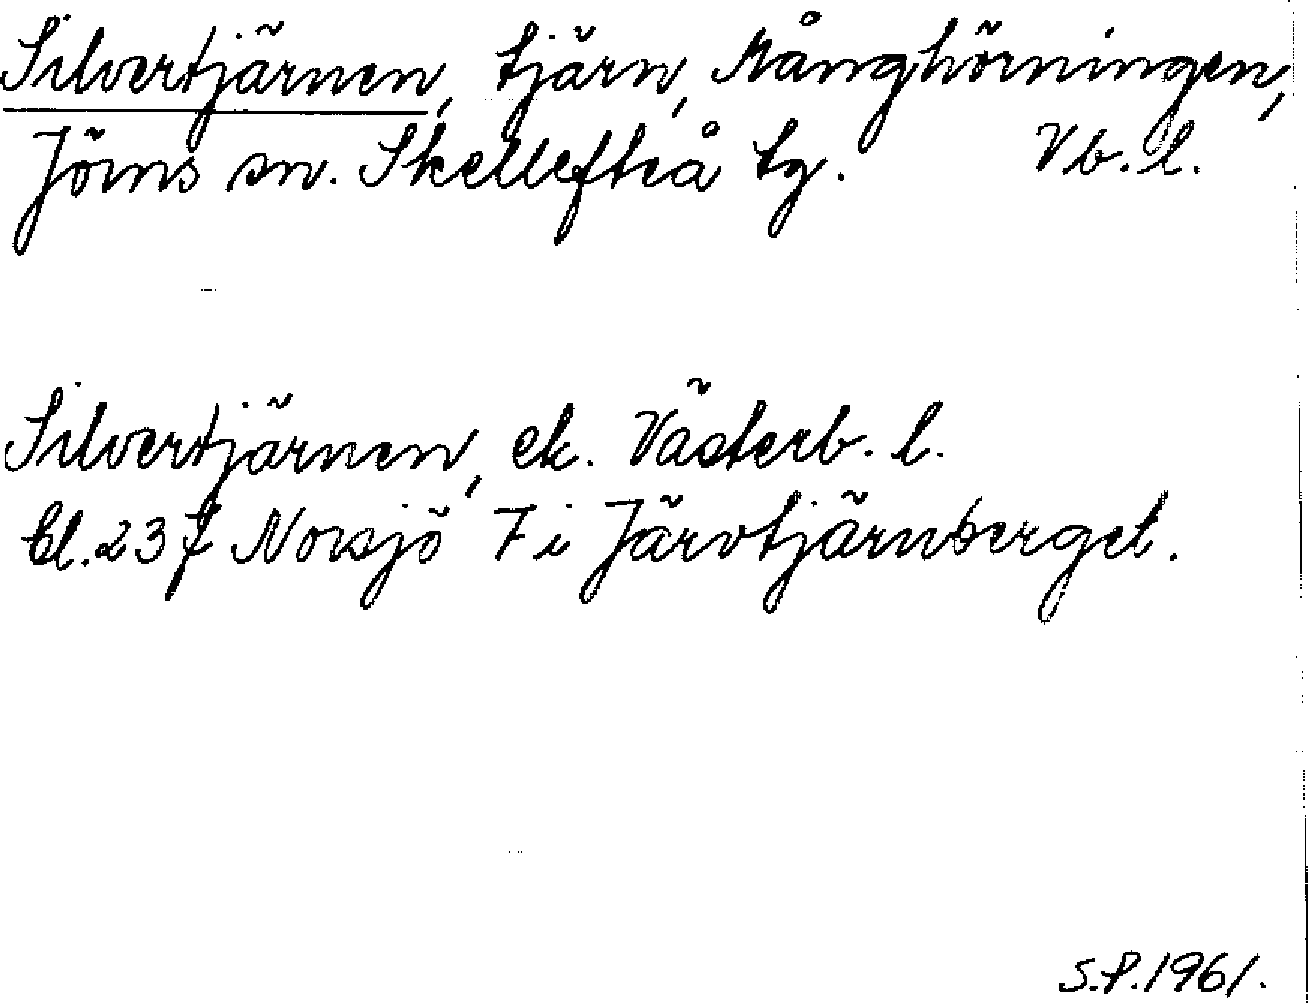 Silvertjärnen, tjärn, Månghörningen,
Jörns sn. Skellefteå tg. Vb. l.
Silvertjärnen, ek. Västerb. l.
Bl. 23 J Norsjö 7 i Järvtjärnberget.
S.P. 1961.